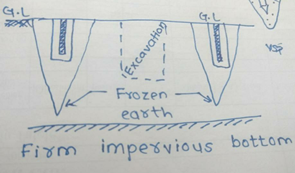 G.L
G.L
Excavation
Frozen
earth
Firm impervious bottom